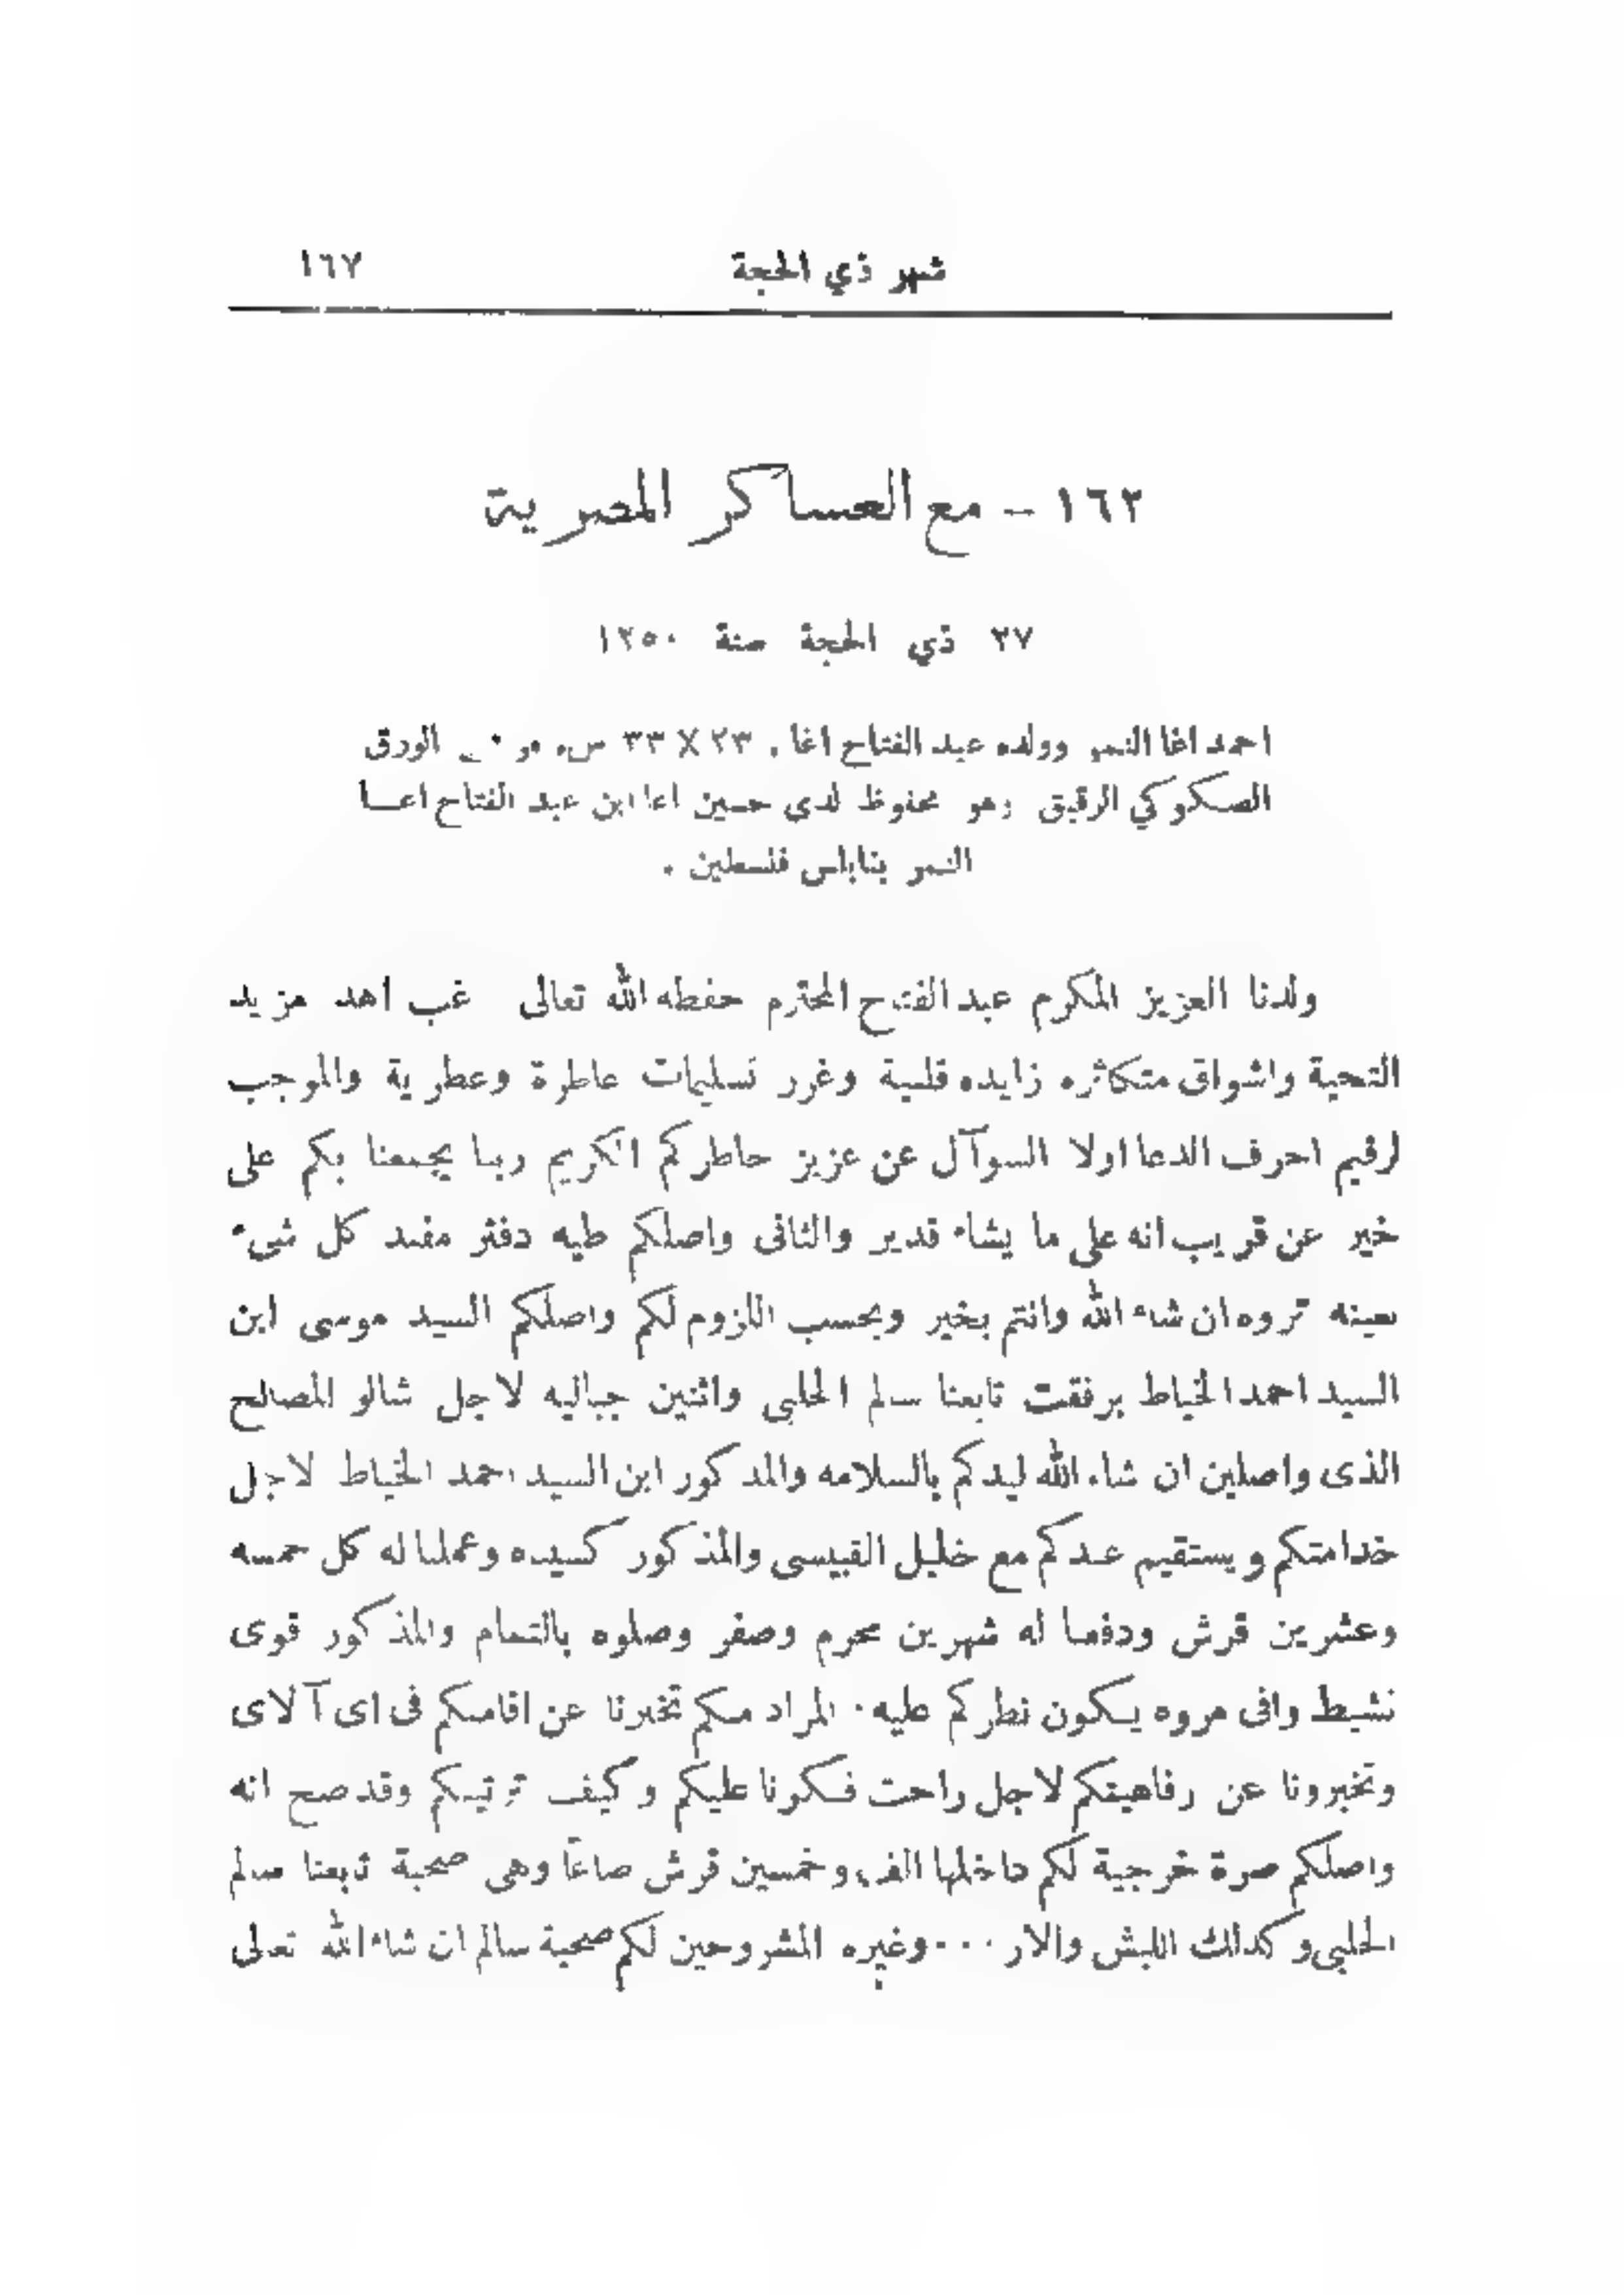 شهر ذي الحجة ١٦٧
١٦٢ – مع العساكر المصرية
٢٧ ذي الحجة سنة ١٢٥٠
احمد اغا النمر وولده عبد الفتاح اغا . ٢٣ × ٣٣ س. الورق
الصكوكي الرقيق وهو محفوظ لدى حسين اغا ابن عبد الفتاح اغــا
النمر بنابلس فلسطين .
ولدنا العزيز المكرم عبد الفتاح المحترم حفظه الله تعالى غب اهد مزيد
التحية واشواق متكاثره زايده قلبية وغرر تسليمات عاطرة وعطرية والموجب
لرقيم احرف الدعا اولا السوآل عن عزيز خاطركم الكريم ربنا يجمعنا بكم على
خير عن قريب انه على ما يشاء قدير والثانى واصلكم طيه دفتر مفند كل شىء
بعينه تروه ان شاء الله وانتم بخير وبحسب اللزوم لكم واصلكم السيد موسى ابن
السيد احمد الخياط برفقت تابعنا سالم الحلبى واثنين جباليه لاجل شالو المصالح
الذى واصلين ان شاء الله ليدكم بالسلامه والمذكور ابن السيد احمد الخياط لاجل
خدامتكم ويستقيم عندكم مع خليل القيسى والمذكور كسيده وعملنا له كل خمسه
وعشرين قرش ودفعنا له شهرين محرم وصفر وصلوه بالتمام والمذكور قوى
نشيط وافى مروه يكون نظركم عليه . المراد منكم تخبرنا عن اقامتكم فى اى آلاى
وتخبرونا عن رفاهيتكم لاجل راحت فكرنا عليكم وكيف ترتيبكم وقد صح انه
واصلكم صرة خرجية لكم داخلها الف وخمسين قرش صاغاً وهى صحبة تابعنا سالم
الحلبى وكذلك اللبش والار ... وغيره المشروحين لكم صحبة سالم ان شاء الله تعلى